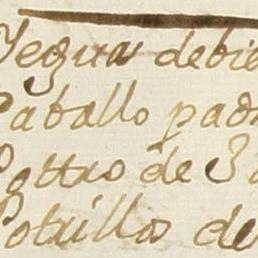 Yeguas debie
Caballo pad
Pottros de 3 a
Potrillos de